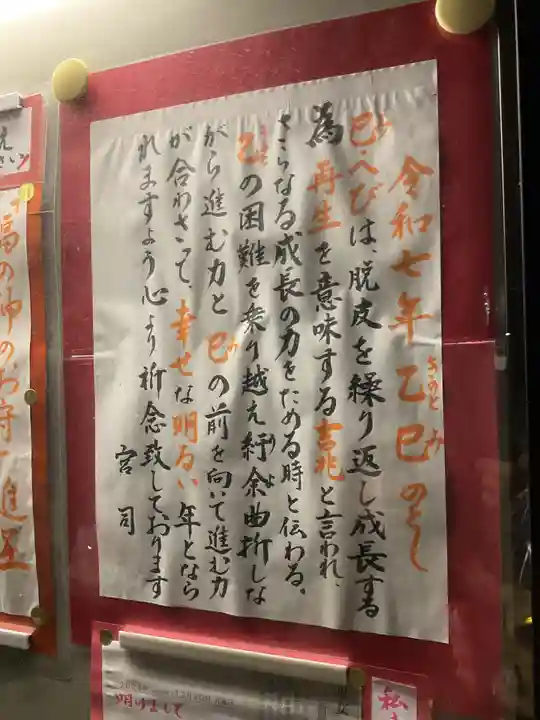 令和七年 乙巳のとし
巳・へびは、脱皮を繰り返し成長する
為 再生を意味する吉兆と言われ、
さらなる成長の力をためる時と伝わる。
乙の困難を乗り越え紆余曲折しな
がら進む力と 巳の前を向いて進む力
が合わさって、幸せな明るい年となら
れますよう心より祈念致しております
宮司
福の神のお守り進呈
明けまして
私